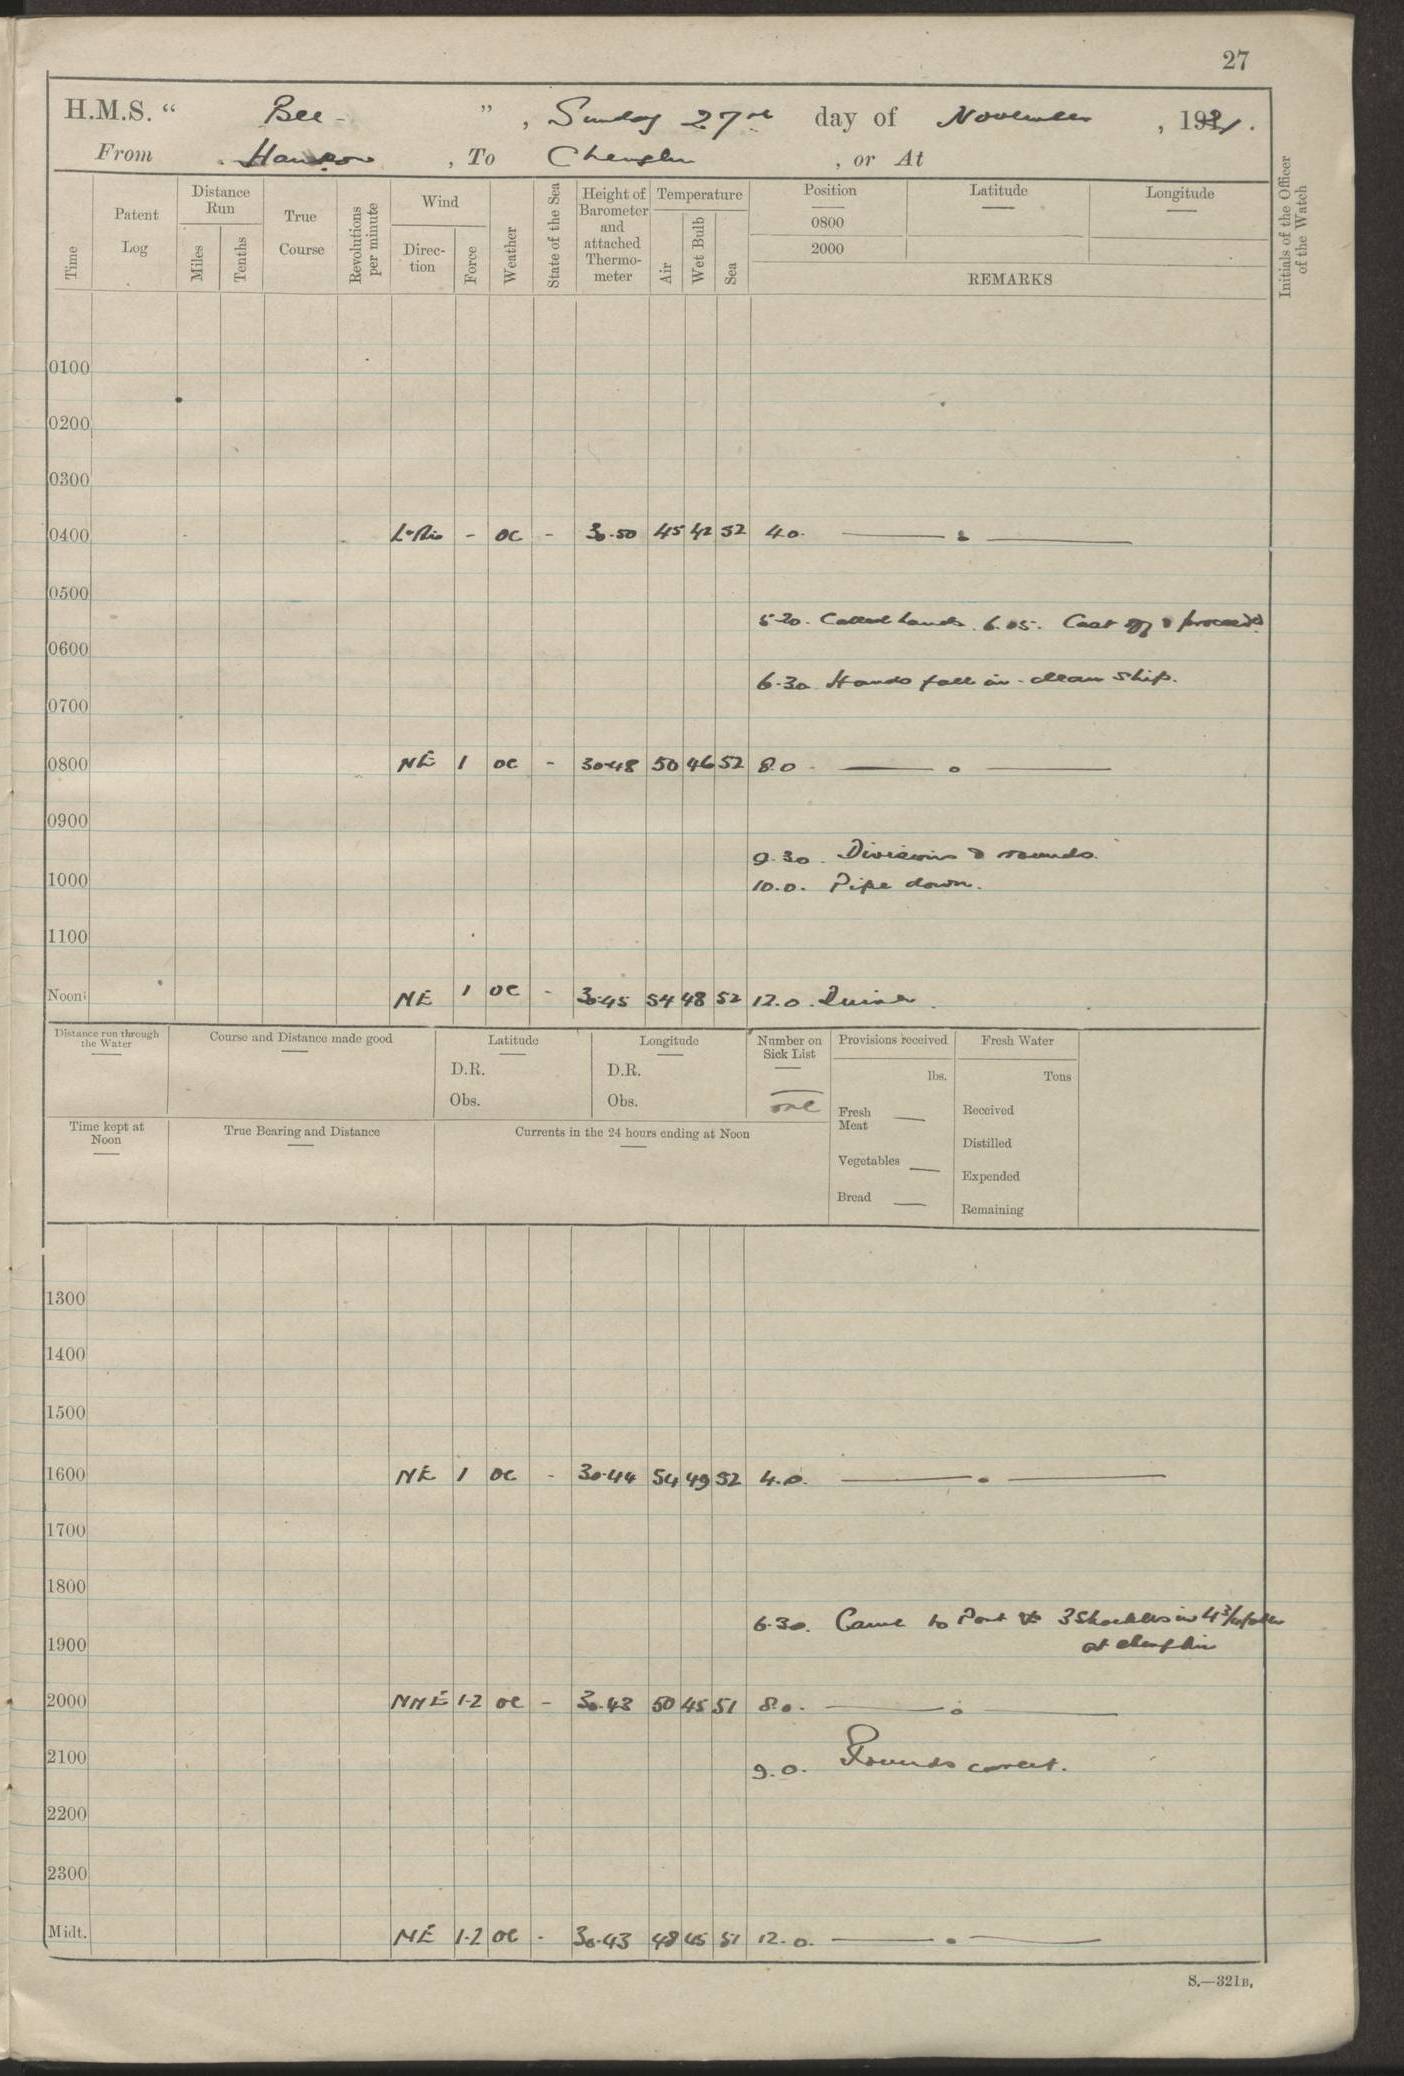 27
H.M.S. " Bee - ", Sunday 27th day of November, 19
From Hankow, To Chenglin, or At
Time
Patent Log
Distance Run
Miles
Tenths
True Course
Revolutions per minute
Wind
Direction
Force
Weather
State of the Sea
Height of Barometer and attached Thermometer
Temperature
Air
Wet Bulb
Sea
Position
0800
2000
Latitude
Longitude
REMARKS
Initials of the Officer of the Watch
0100
0200
0300
0400 - oc - 30.50 45 42 52 4.0. ——— " ———
0500
5.20. Called hands. 6.05. Cast off & proceeded
0600
6.30 Hands fall in - clean ship.
0700
0800 NE 1 oc - 30.48 50 46 52 8.0 - ——— " ———
0900
9.30. Divisions & rounds.
1000 10.0. Pipe down.
1100
Noon NE 1 oc - 30.45 54 48 52 12.0. Dinner.
Distance run through the Water
Course and Distance made good
Latitude
D.R.
Obs.
Longitude
D.R.
Obs.
Number on Sick List
one
Provisions received
lbs.
Fresh Meat —
Vegetables —
Bread —
Fresh Water
Tons
Received
Distilled
Expended
Remaining
Time kept at Noon
True Bearing and Distance
Currents in the 24 hours ending at Noon
1300
1400
1500
1600 NE 1 oc - 30.44 54 49 52 4.0. ——— " ———
1700
1800
6.30. Came to Port 3 Shackles in 4 3/4
1900 at Chenglin
2000 NNE 1-2 oc - 30.43 50 45 51 8.0. ——— " ———
2100 9.0. Rounds correct.
2200
2300
Midt. NE 1-2 oc - 30.43 48 45 51 12.0. ——— " ———
S.—321B.